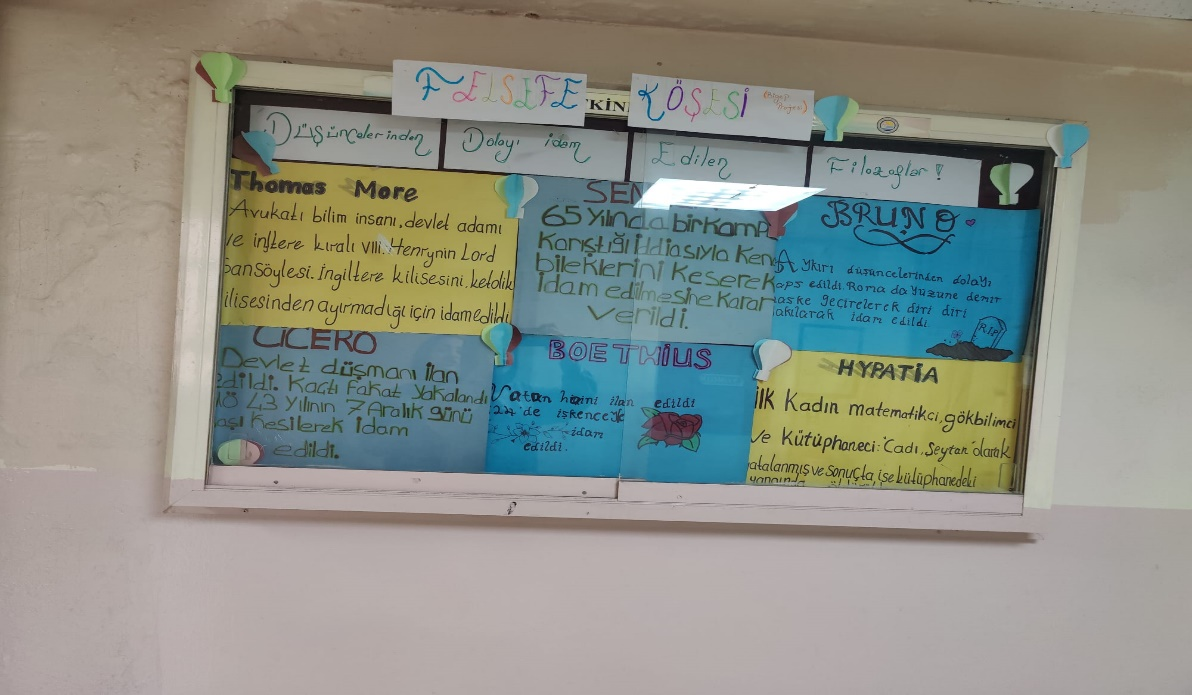 FELSEFE KÖŞESİ
Düşüncelerinden Dolayı idam Edilen Filozoflar !
Thomas More
Avukatı bilim insanı, devlet adamı
ve ingltere kıralı VIII. Henrynin Lord
şansöylesi. İngiltere kilisesini. katolik
kilisesinden ayırmadığı için idam edildi
SEN
65 Yılında bir Kamp
Karıştığı iddiasıyla Ken
bileklerini Keserek
idam edilmesine Karar
Verildi.
BRUNO
Aykırı düşüncelerinden dolayı
aps edildi. Roma da Yüzüne demir
aske geçirelerek diri diri
akılarak idam edildi
RIP
CICERO
Devlet düşmanı ilan
edildi. Kaçtı fakat Yakalandı
MÖ 43 Yılının 7 Aralık günü
aşı Kesilerek idam
edildi.
BOETHIUS
Vatan haini ilan edildi
'de işkenceyle
idam
edildi.
HYPATIA
İlk Kadın matematikçi, gökbilimci
ve Kütüphaneci. "Cadı, Şeytan" olarak
atalanmış ve sonuçta ise kütüphanedeki